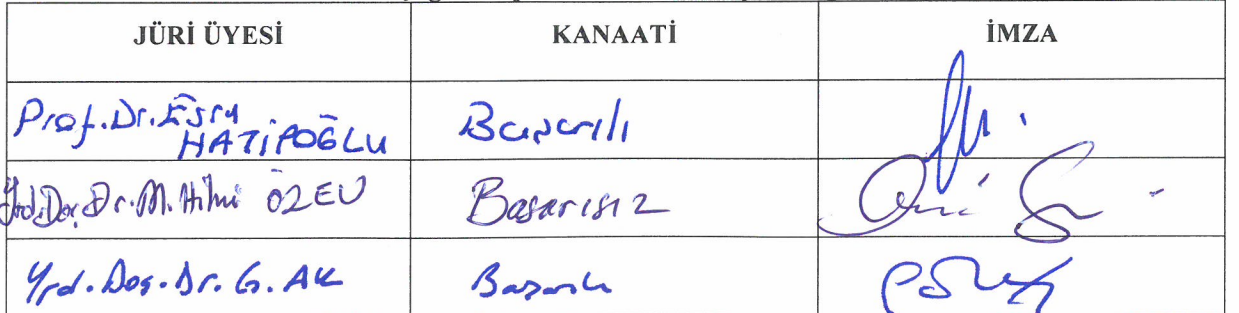 JÜRİ ÜYESİ KANAATİ İMZA
Prof.Dr.Esra
HATİPOĞLU Başarılı
Yrd.Doç.Dr.M.Hilmi ÖZEV Başarısız
Yrd.Doç.Dr.G.AK Başarılı